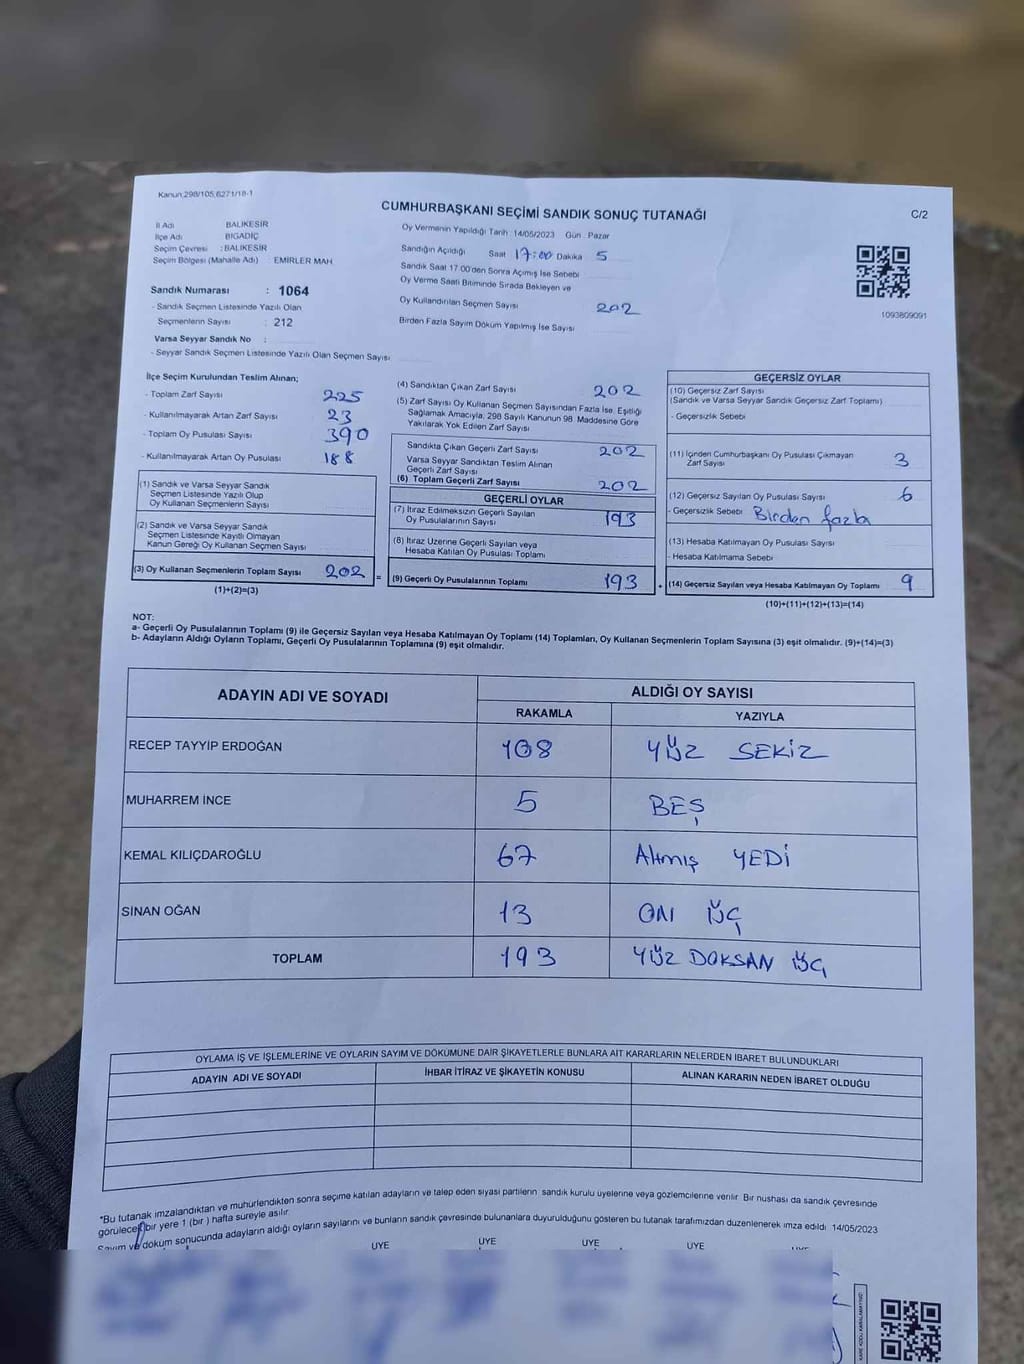 Kanun;298/105,6271/18-1
CUMHURBAŞKANI SEÇİMİ SANDIK SONUÇ TUTANAĞI
C/2
İl Adı BALIKESİR
İlçe Adı BİGADİÇ
Seçim Çevresi : BALIKESİR
Seçim Bölgesi (Mahalle Adı) : EMİRLER MAH.
Sandık Numarası : 1064
- Sandık Seçmen Listesinde Yazılı Olan
Seçmenlerin Sayısı : 212
Varsa Seyyar Sandık No :
- Seyyar Sandık Seçmen Listesinde Yazılı Olan Seçmen Sayısı
Oy Vermenin Yapıldığı Tarih : 14/05/2023 Gün : Pazar
Sandığın Açıldığı Saat 17:00 Dakika 5
Sandık Saat 17:00'den Sonra Açımış İse Sebebi
Oy Verme Saati Bitiminde Sırada Bekleyen ve
Oy Kullandırılan Seçmen Sayısı 202
Birden Fazla Sayım Döküm Yapılmış İse Sayısı
1093809091
İlçe Seçim Kurulundan Teslim Alınan;
- Toplam Zarf Sayısı 225
- Kullanılmayarak Artan Zarf Sayısı 23
- Toplam Oy Pusulası Sayısı 390
- Kullanılmayarak Artan Oy Pusulası 188
(1) Sandık ve Varsa Seyyar Sandık
Seçmen Listesinde Yazılı Olup
Oy Kullanan Seçmenlerin Sayısı
(2) Sandık ve Varsa Seyyar Sandık
Seçmen Listesinde Kayıtlı Olmayan
Kanun Gereği Oy Kullanan Seçmen Sayısı
(3) Oy Kullanan Seçmenlerin Toplam Sayısı 202
(1)+(2)=(3)
=
(4) Sandıktan Çıkan Zarf Sayısı 202
(5) Zarf Sayısı Oy Kullanan Seçmen Sayısından Fazla İse, Eşitliği
Sağlamak Amacıyla, 298 Sayılı Kanunun 98. Maddesine Göre
Yakılarak Yok Edilen Zarf Sayısı
Sandıkta Çıkan Geçerli Zarf Sayısı 202
Varsa Seyyar Sandıktan Teslim Alınan
Geçerli Zarf Sayısı
(6) Toplam Geçerli Zarf Sayısı 202
GEÇERLİ OYLAR
(7) İtiraz Edilmeksizin Geçerli Sayılan
Oy Pusulalarının Sayısı 193
(8) İtiraz Üzerine Geçerli Sayılan veya
Hesaba Katılan Oy Pusulası Toplamı
(9) Geçerli Oy Pusulalarının Toplamı 193
+
GEÇERSİZ OYLAR
(10) Geçersiz Zarf Sayısı
(Sandık ve Varsa Seyyar Sandık Geçersiz Zarf Toplamı)
- Geçersizlik Sebebi
(11) İçinden Cumhurbaşkanı Oy Pusulası Çıkmayan
Zarf Sayısı 3
(12) Geçersiz Sayılan Oy Pusulası Sayısı 6
- Geçersizlik Sebebi Birden fazla
(13) Hesaba Katılmayan Oy Pusulası Sayısı
- Hesaba Katılmama Sebebi
(14) Geçersiz Sayılan veya Hesaba Katılmayan Oy Toplamı 9
(10)+(11)+(12)+(13)=(14)
NOT:
a- Geçerli Oy Pusulalarının Toplamı (9) ile Geçersiz Sayılan veya Hesaba Katılmayan Oy Toplamı (14) Toplamları, Oy Kullanan Seçmenlerin Toplam Sayısına (3) eşit olmalıdır. (9)+(14)=(3)
b- Adayların Aldığı Oyların Toplamı, Geçerli Oy Pusulalarının Toplamına (9) eşit olmalıdır.
ADAYIN ADI VE SOYADI ALDIĞI OY SAYISI
RAKAMLA YAZIYLA
RECEP TAYYİP ERDOĞAN 108 YÜZ SEKİZ
MUHARREM İNCE 5 BEŞ
KEMAL KILIÇDAROĞLU 67 Altmış YEDİ
SİNAN OĞAN 13 ON ÜÇ
TOPLAM 193 YÜZ DOKSAN ÜÇ
OYLAMA İŞ VE İŞLEMLERİNE VE OYLARIN SAYIM VE DÖKÜMÜNE DAİR ŞİKAYETLERLE BUNLARA AİT KARARLARIN NELERDEN İBARET BULUNDUKLARI
ADAYIN ADI VE SOYADI İHBAR İTİRAZ VE ŞİKAYETİN KONUSU ALINAN KARARIN NEDEN İBARET OLDUĞU
*Bu tutanak imzalandıktan ve mühürlendikten sonra seçime katılan adayların ve talep eden siyasi partilerin sandık kurulu üyelerine veya gözlemcilerine verilir. Bir nüshası da sandık çevresinde
görülecek bir yere 1 (bir ) hafta süreyle asılır.
Sayım ve döküm sonucunda adayların aldığı oyların sayılarını ve bunların sandık çevresinde bulunanlara duyurulduğunu gösteren bu tutanak tarafımızdan düzenlenerek imza edildi. 14/05/2023
ÜYE ÜYE ÜYE ÜYE